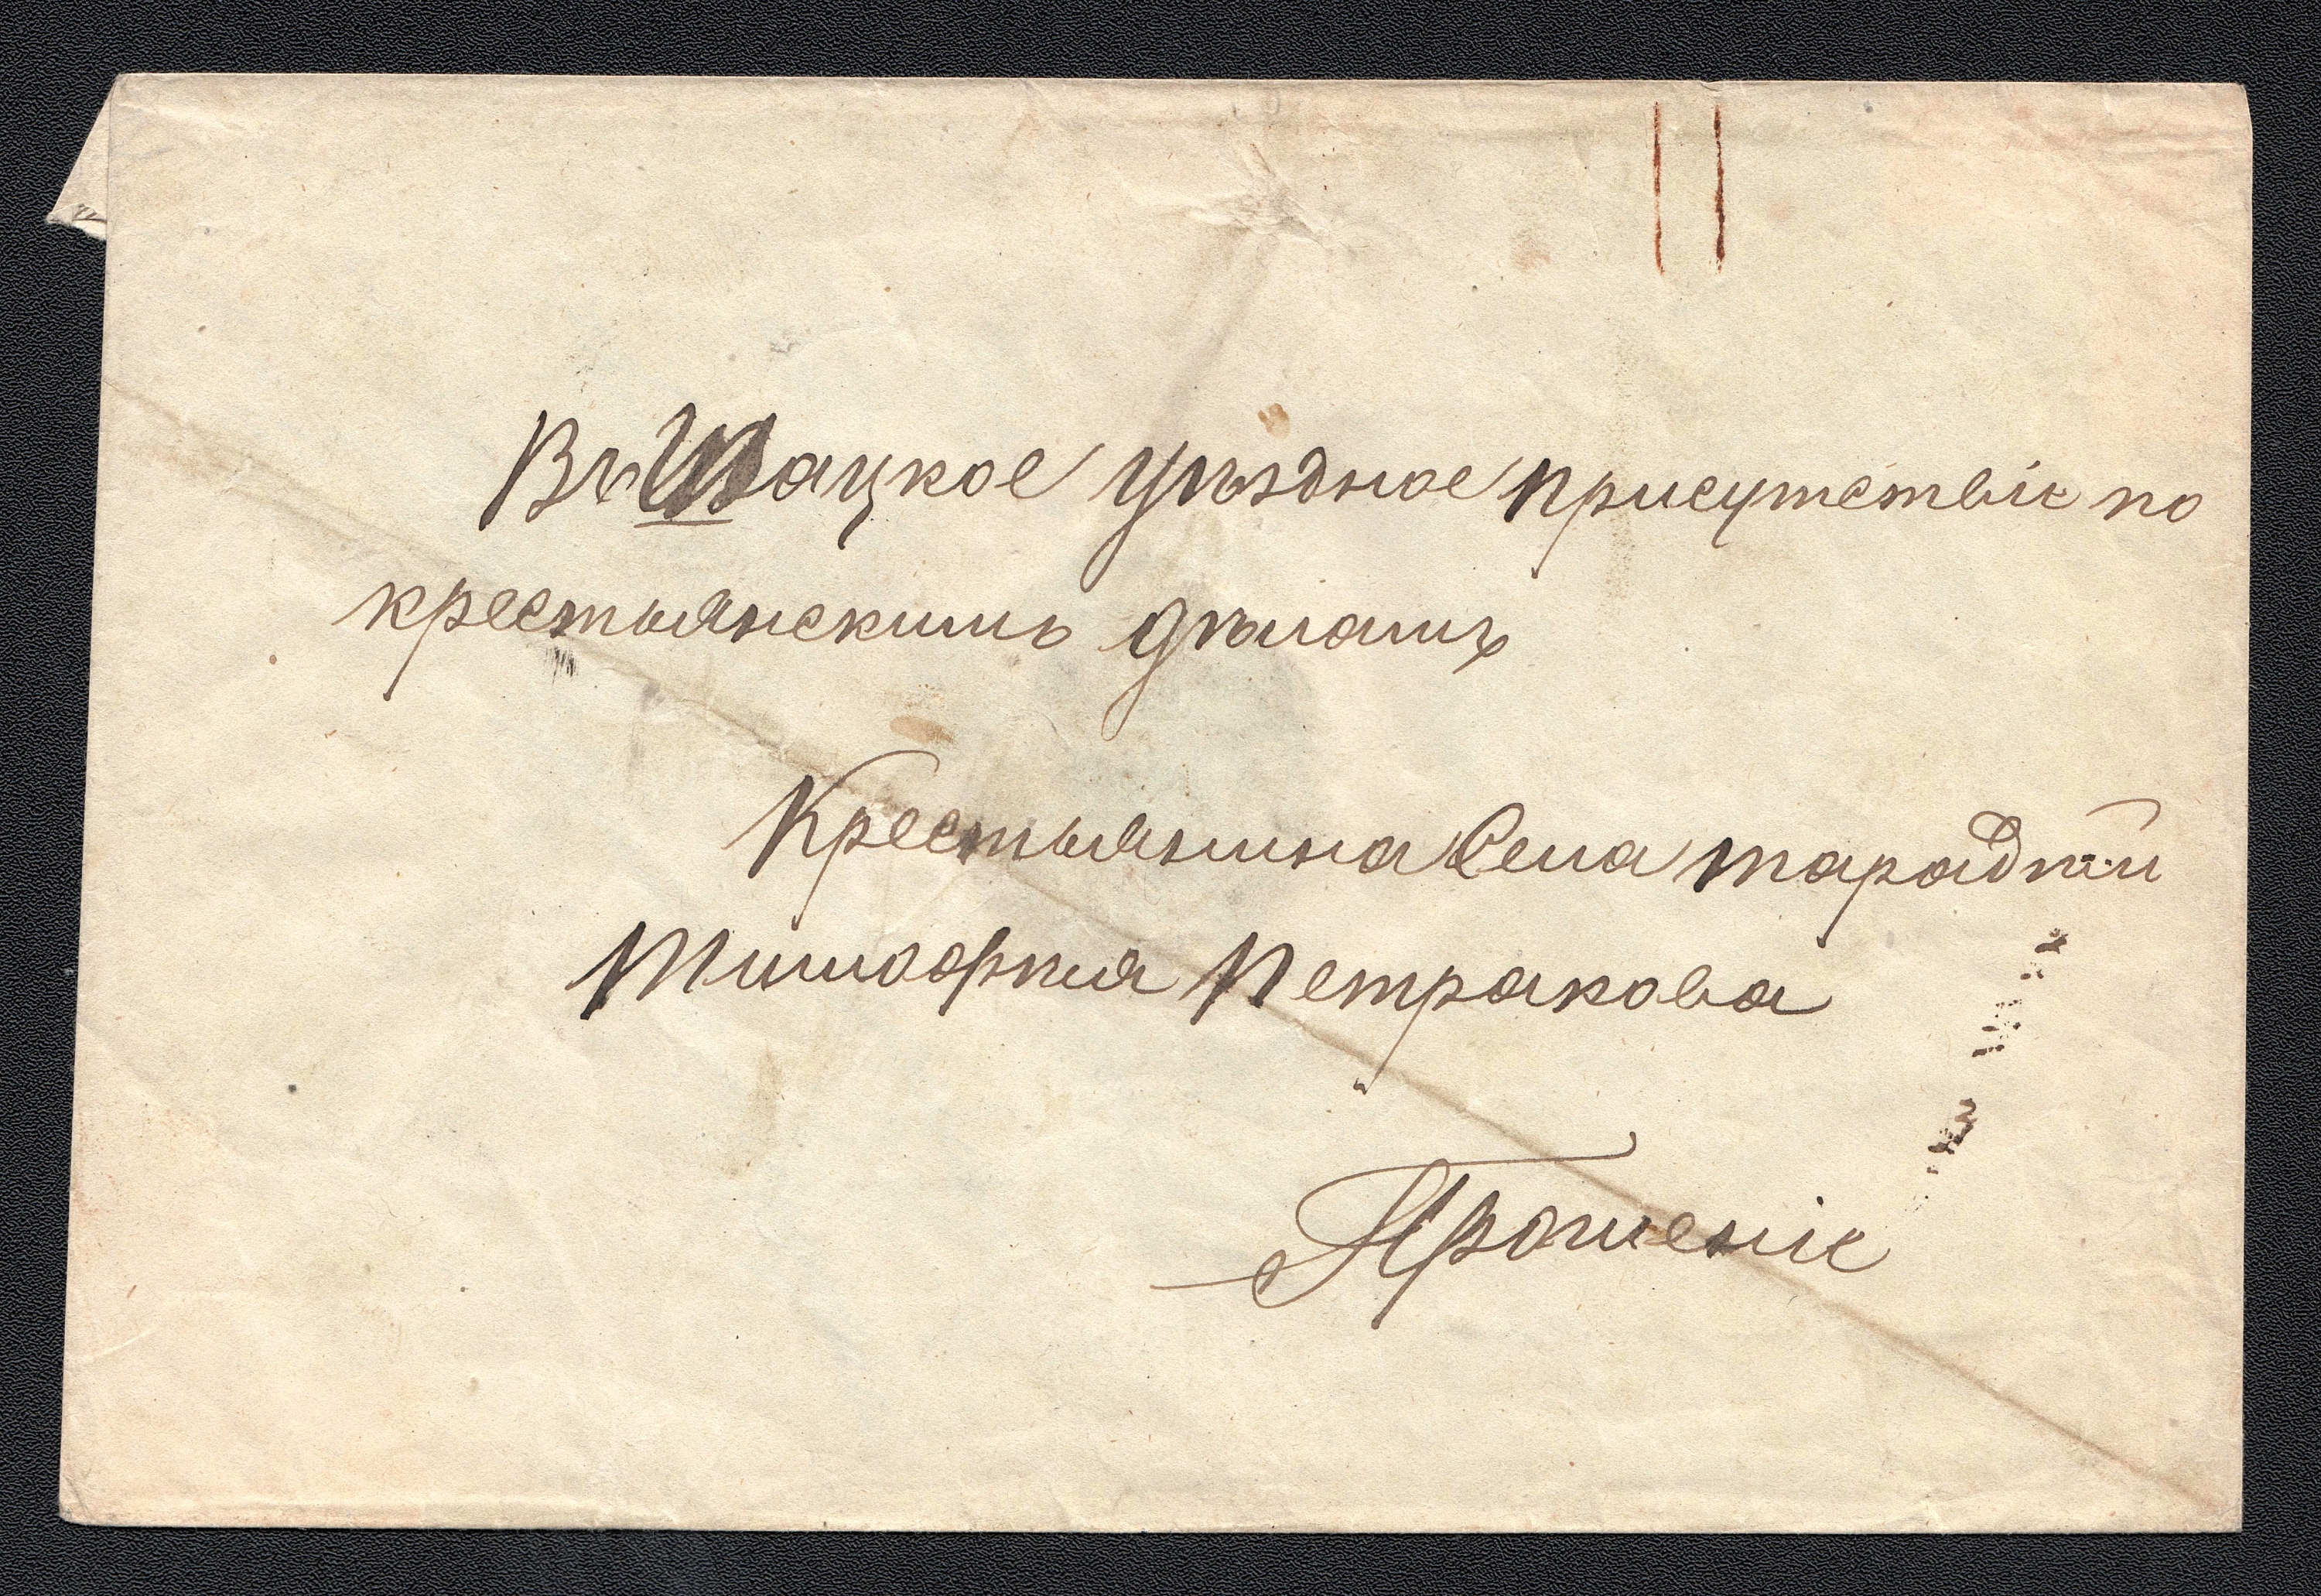 Въ Шацкое Уѣздное присутствіе по
крестьянскимъ дѣламъ
Крестьянина Села тарадѣй
Тимофѣя Петракова
Прошеніе